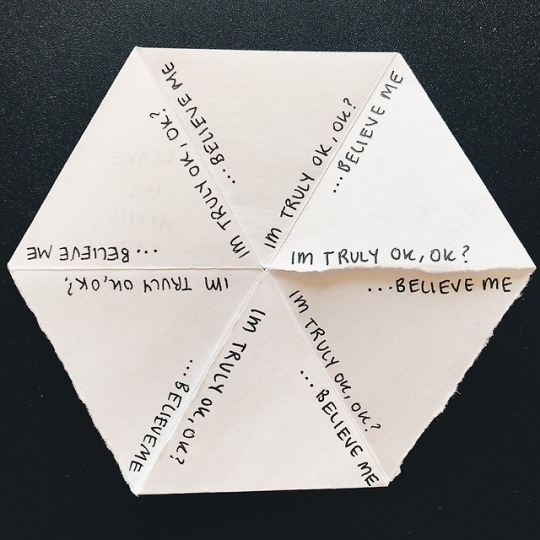 IM TRULY OK, OK?
...BELIEVE ME
IM TRULY OK, OK?
....BELIEVE ME
IM TRULY OK, OK?
...BELIEVE ME
IM TRULY OK, OK?
...BELIEVE ME
IM TRULY OK, OK?
...BELIEVE ME
IM TRULY OK, OK?
...BELIEVE ME
LEAVE
ME
ALONE